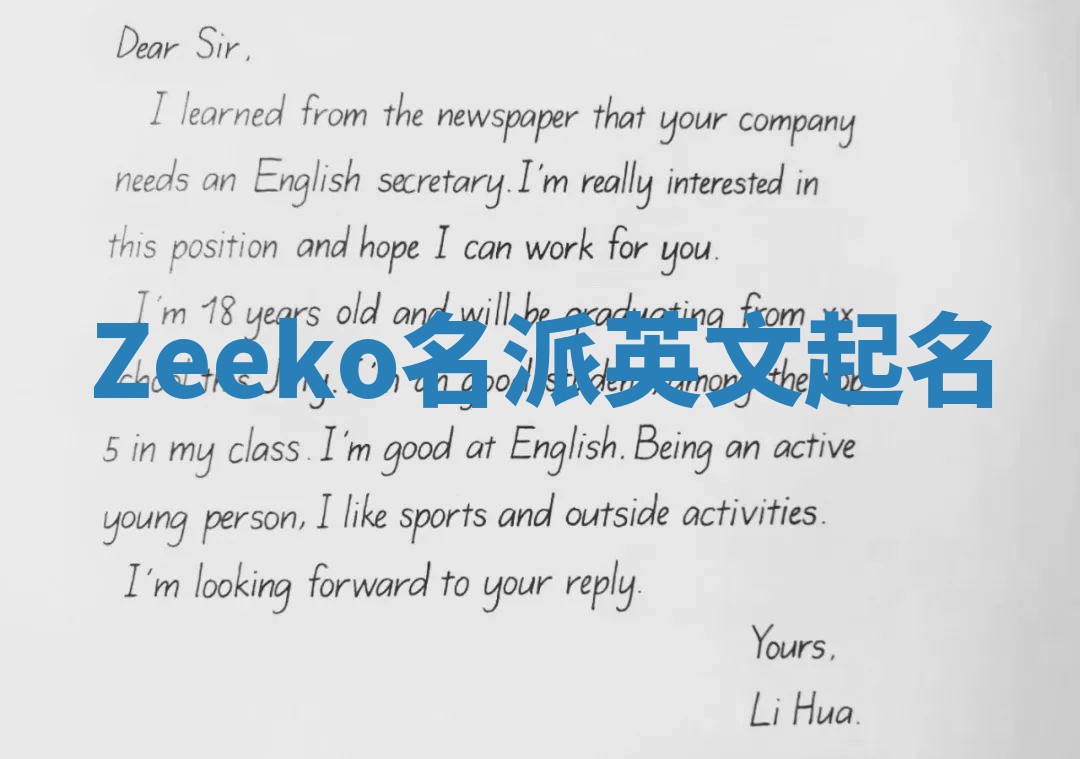 Dear Sir,
I learned from the newspaper that your company
needs an English secretary. I'm really interested in
this position and hope I can work for you.
I'm 18 years old and will be graduating from xx
Zeeko名派英文起名
school this July. I'm an good student, among the top
5 in my class. I'm good at English. Being an active
young person, I like sports and outside activities.
I'm looking forward to your reply.
Yours,
Li Hua.